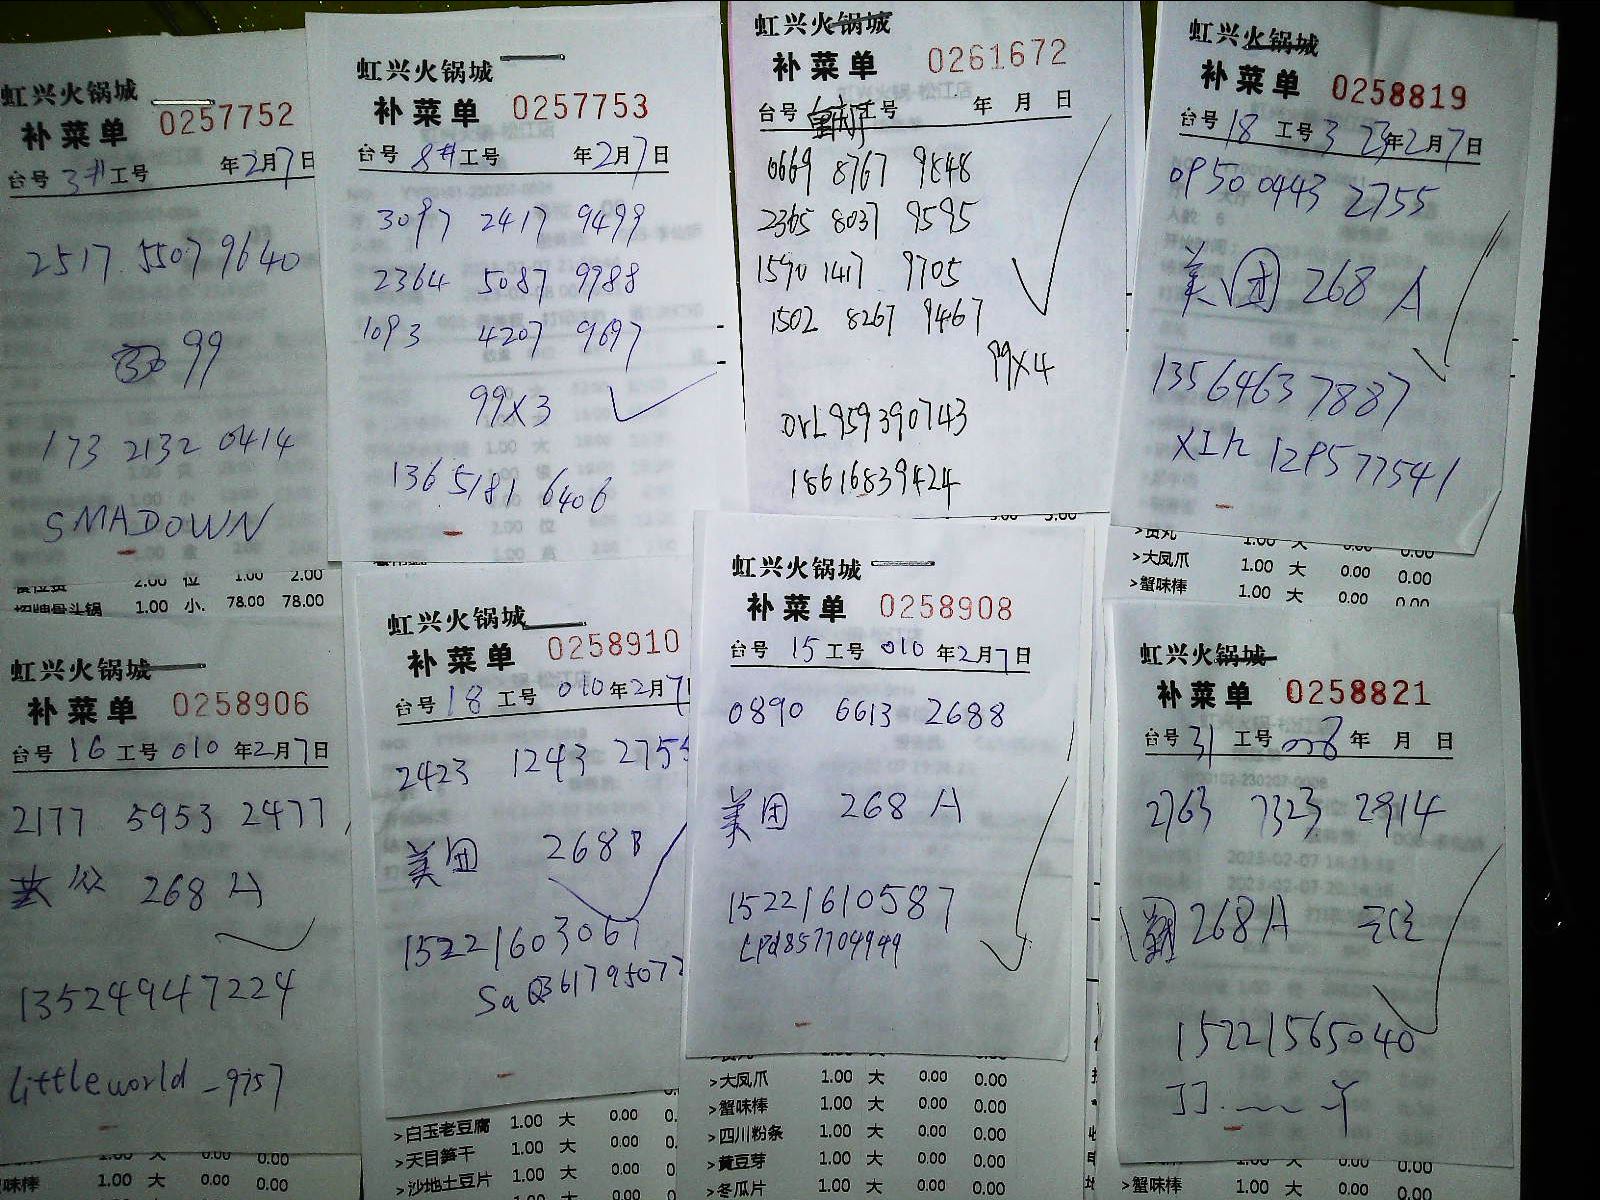 虹兴火锅城
补菜单 0257752
台号 3# 工号 年2月7日
2517 5507 9640
99
173 2132 0414
SMADOWN
2.00 位 1.00 2.00
招牌骨头锅 1.00 小. 78.00 78.00
虹兴火锅城
补菜单 0257753
台号 8# 工号 年2月7日
3097 2417 9499
2364 5087 9988
1093 4207 9697
99X3
136 5181 6406
虹兴火锅城
补菜单 0261672
台号 工号 年 月 日
0669 8767 9848
2365 8037 9595
1590 1417 9705
1502 8267 9467
99X4
OrL959390743
18616839424
虹兴火锅城
补菜单 0258819
台号 18 工号 3 23年2月7日
0950 0443 2755
美团 268 A
13564637887
XIh 129577541
>贡丸 1.00 大 0.00 0.00
>大凤爪 1.00 大 0.00 0.00
>蟹味棒 1.00 大 0.00 0.00
虹兴火锅城
补菜单 0258906
台号 16 工号 010 年2月7日
2177 5953 2477
268 A
13524947224
littleworld_9757
1.00 大 0.00 0.00
味棒 1.00 大 0.00 0.00
虹兴火锅城
补菜单 0258910
台号 18 工号 010 年2月7
2423 1243 2755
美团 268B
15221603067
SaQ36179507
>白玉老豆腐 1.00 大 0.00
>天目笋干 1.00 大 0.00
>沙地土豆片 1.00 大 0.00
虹兴火锅城
补菜单 0258908
台号 15 工号 010 年2月7日
0890 6613 2688
美团 268 A
15221610587
LPd857704949
>大凤爪 1.00 大 0.00 0.00
>蟹味棒 1.00 大 0.00 0.00
>四川粉条 1.00 大 0.00 0.00
>黄豆芽 1.00 大 0.00 0.00
>冬瓜片 1.00 大 0.00 0.00
虹兴火锅城
补菜单 0258821
台号 31 工号 008 年 月 日
2763 7323 2914
268A
15221565040
>蟹味棒 1.00 大 0.00 0.00